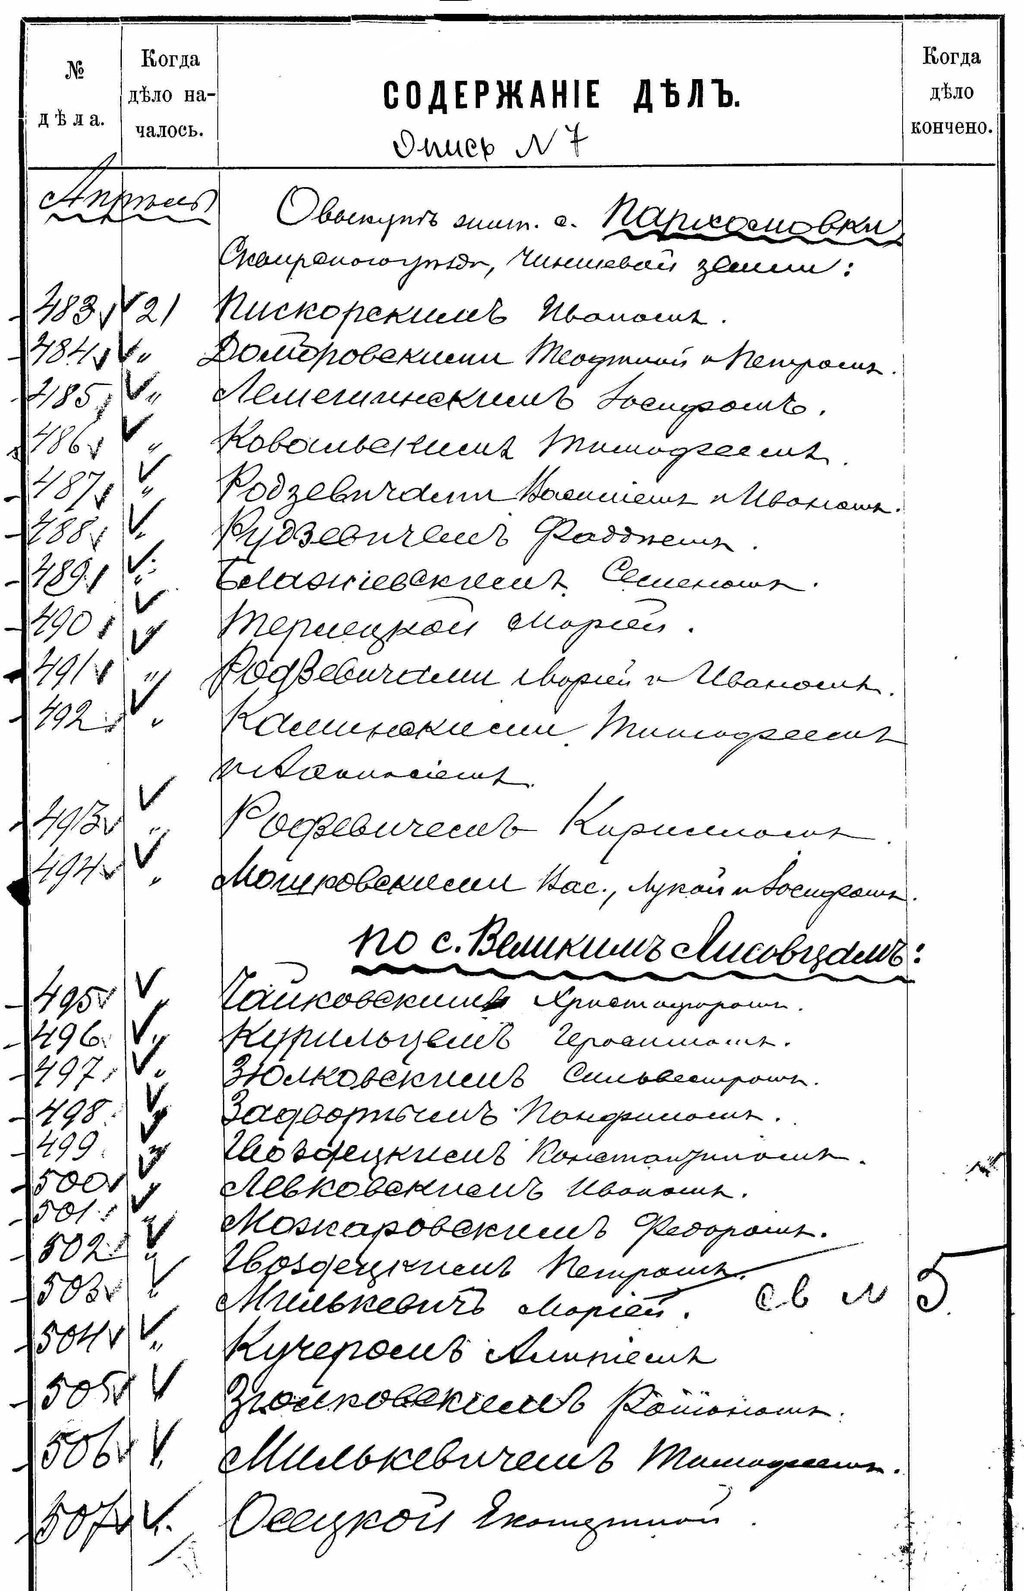 № дѣла.
Когда дѣло началось.
СОДЕРЖАНІЕ ДѢЛЪ.
Когда дѣло кончено.
Опись N 7
Апрѣль
О выкупѣ жит. с. Пархомовки
Сквирскаго уѣзда, чиншевой земли:
483 21 Пискорскимъ Иваномъ.
484 " Домбровскими Теофилой и Петромъ.
485 " Лемешинскимъ Іосифомъ.
486 " Ковальскимъ Тимофеемъ.
487 " Родзевичами Василіемъ и Иваномъ.
488 " Рудзевичемъ Фаддѣемъ.
489 " Блажіевскимъ Семеномъ.
490 " Терлецкой Маріей.
491 " Родзевичами Маріей и Иваномъ.
492 " Каминскими Тимофеемъ
и Афанасіемъ.
493 " Родзевичемъ Кирилломъ.
494 " Мошковскими Вас., Лукой и Іосифомъ.
по с. Великимъ Лисовцамъ:
495 " Чайковскимъ Христофоромъ.
496 " Курильцемъ Герасимомъ.
497 " Зюлковскимъ Сильвестромъ.
498 " Задворнымъ Панфиломъ.
499 " Гвоздецкимъ Константиномъ.
500 " Левковскимъ Иваномъ.
501 " Можаровскимъ Федоромъ.
502 " Гвоздецкимъ Петромъ.
503 " Милькевичъ Маріей. св N 5
504 " Кучеромъ
505 Романомъ.
506 " Милькевичемъ Тимофеемъ.
507 " Осецкой Екатериной.